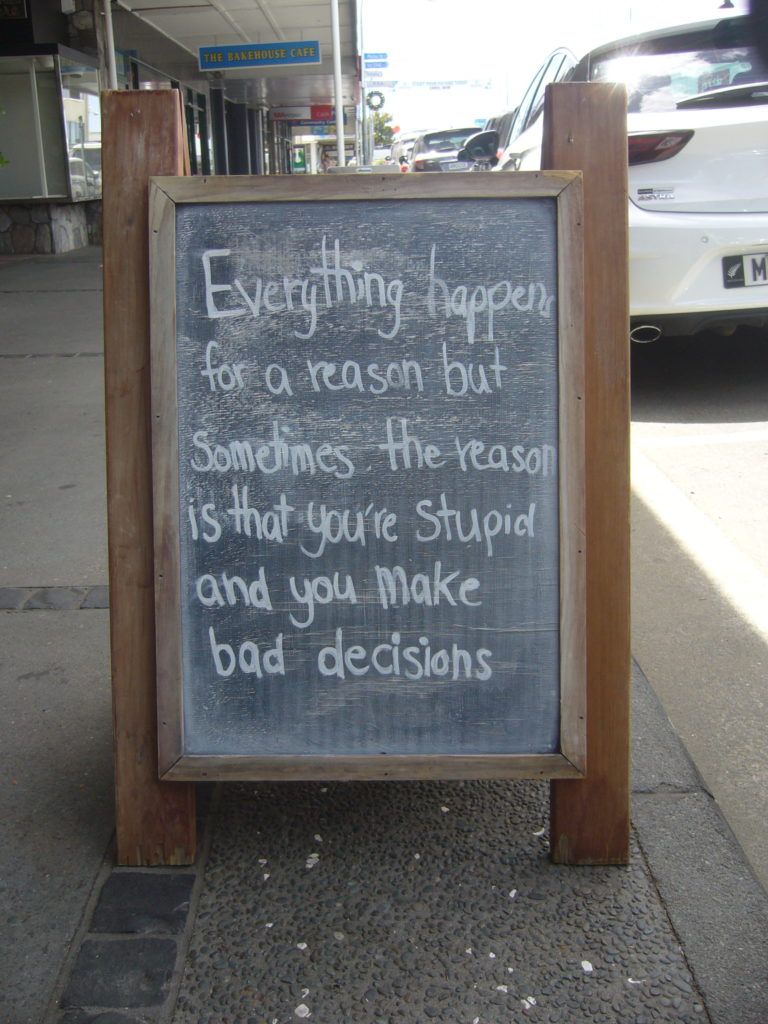 THE BAKEHOUSE CAFE
Everything happens
for a reason but
sometimes the reason
is that you're stupid
and you make
bad decisions
M